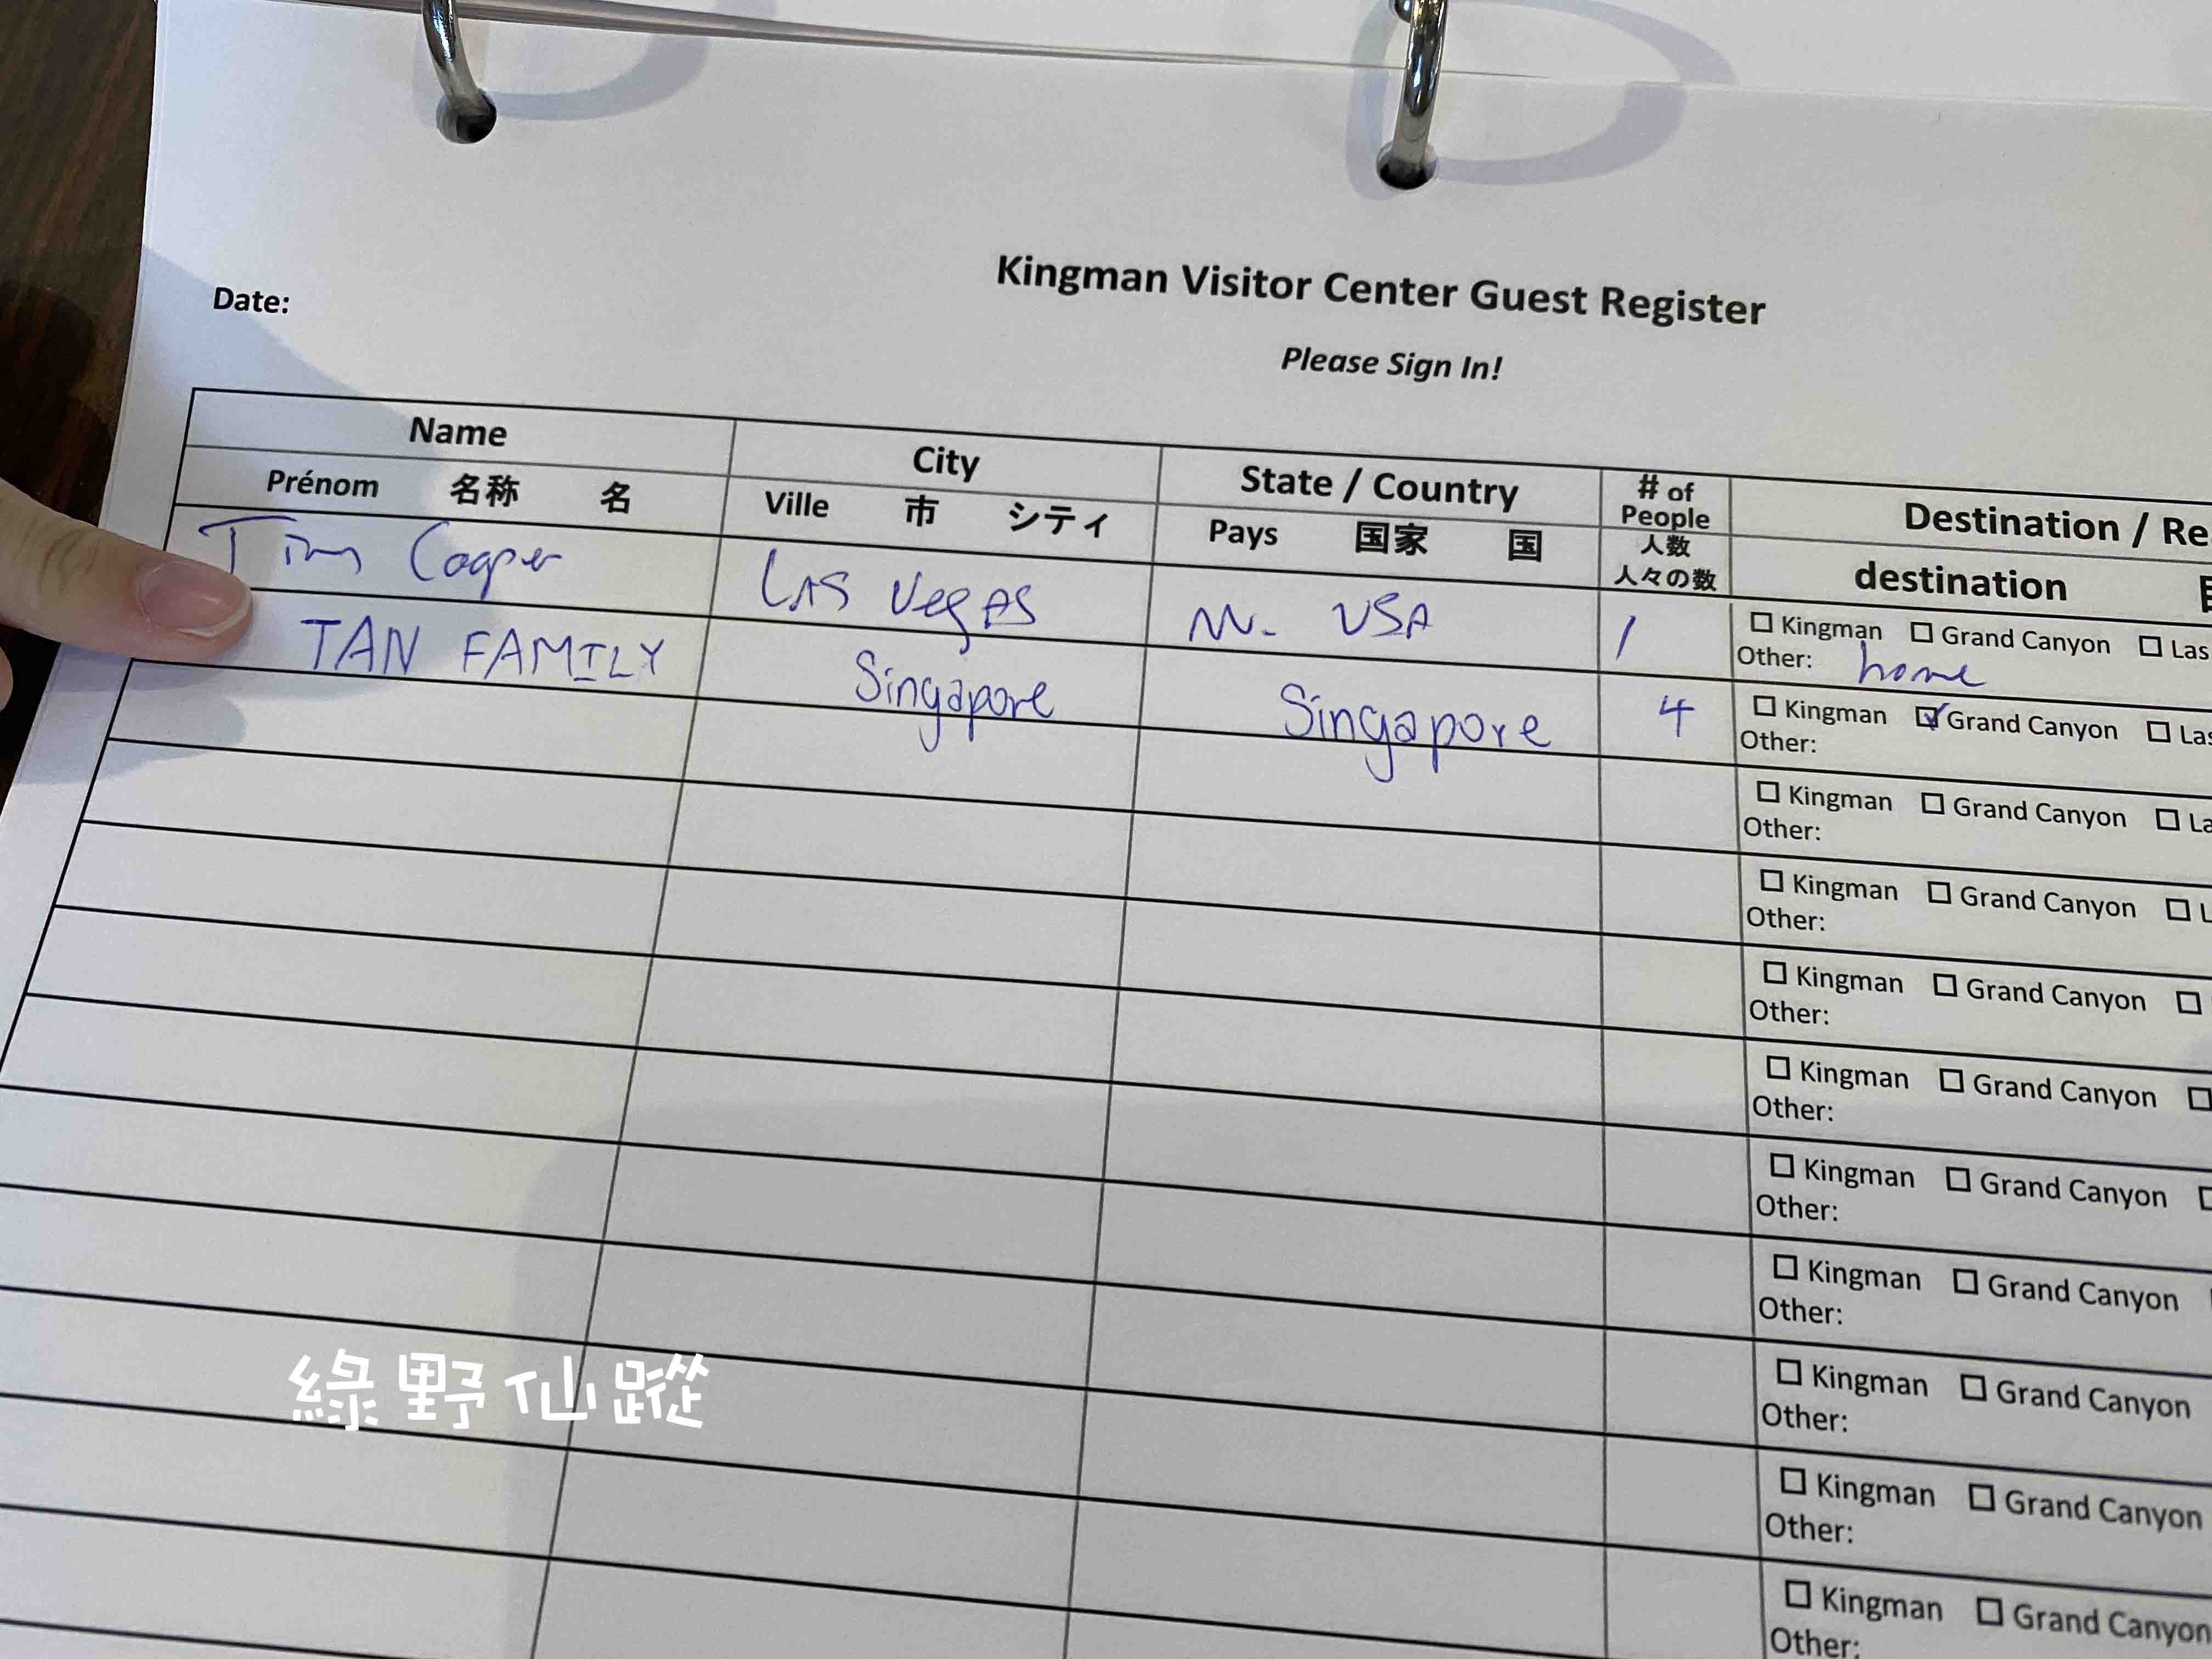 Kingman Visitor Center Guest Register
Date:
Please Sign In!
Name City State / Country # of People Destination / Re
Prénom 名称 名 Ville 市 シティ Pays 国家 国 人数 人々の数 destination
Tim Cooper Las Vegas USA 1 ☐ Kingman ☐ Grand Canyon ☐ Las
Other: home
TAN FAMILY Singapore Singapore 4 ☐ Kingman ☑ Grand Canyon ☐ Las
Other:
☐ Kingman ☐ Grand Canyon ☐ La
Other:
☐ Kingman ☐ Grand Canyon ☐ L
Other:
☐ Kingman ☐ Grand Canyon ☐
Other:
☐ Kingman ☐ Grand Canyon ☐
Other:
☐ Kingman ☐ Grand Canyon
Other:
☐ Kingman ☐ Grand Canyon
Other:
☐ Kingman ☐ Grand Canyon
Other:
☐ Kingman ☐ Grand Canyon
Other:
☐ Kingman ☐ Grand Canyon
Other:
綠野仙蹤